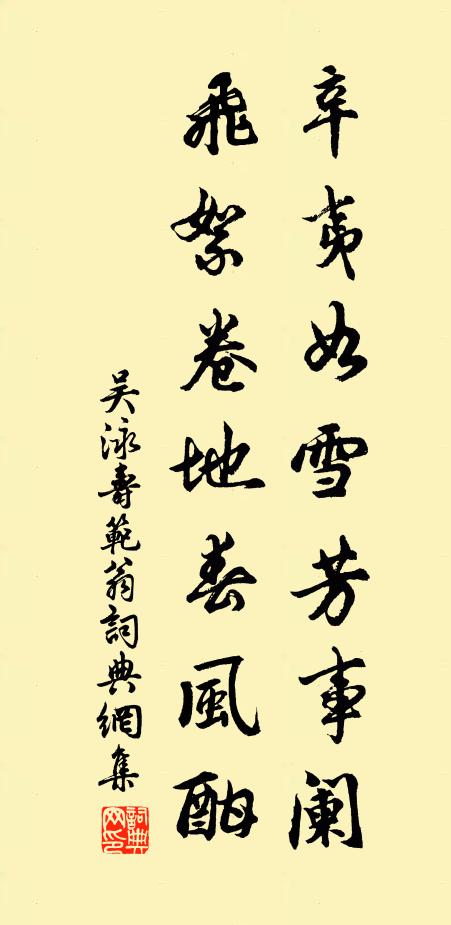 辛夷如雪芳事阑
飛絮卷地春風酣
吴泳壽範翁詞典網集
詞典網印